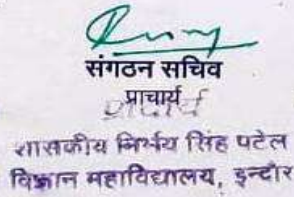 संगठन सचिव
प्राचार्य
प्राचार्य
शासकीय निर्भय सिंह पटेल
विज्ञान महाविद्यालय, इन्दौर